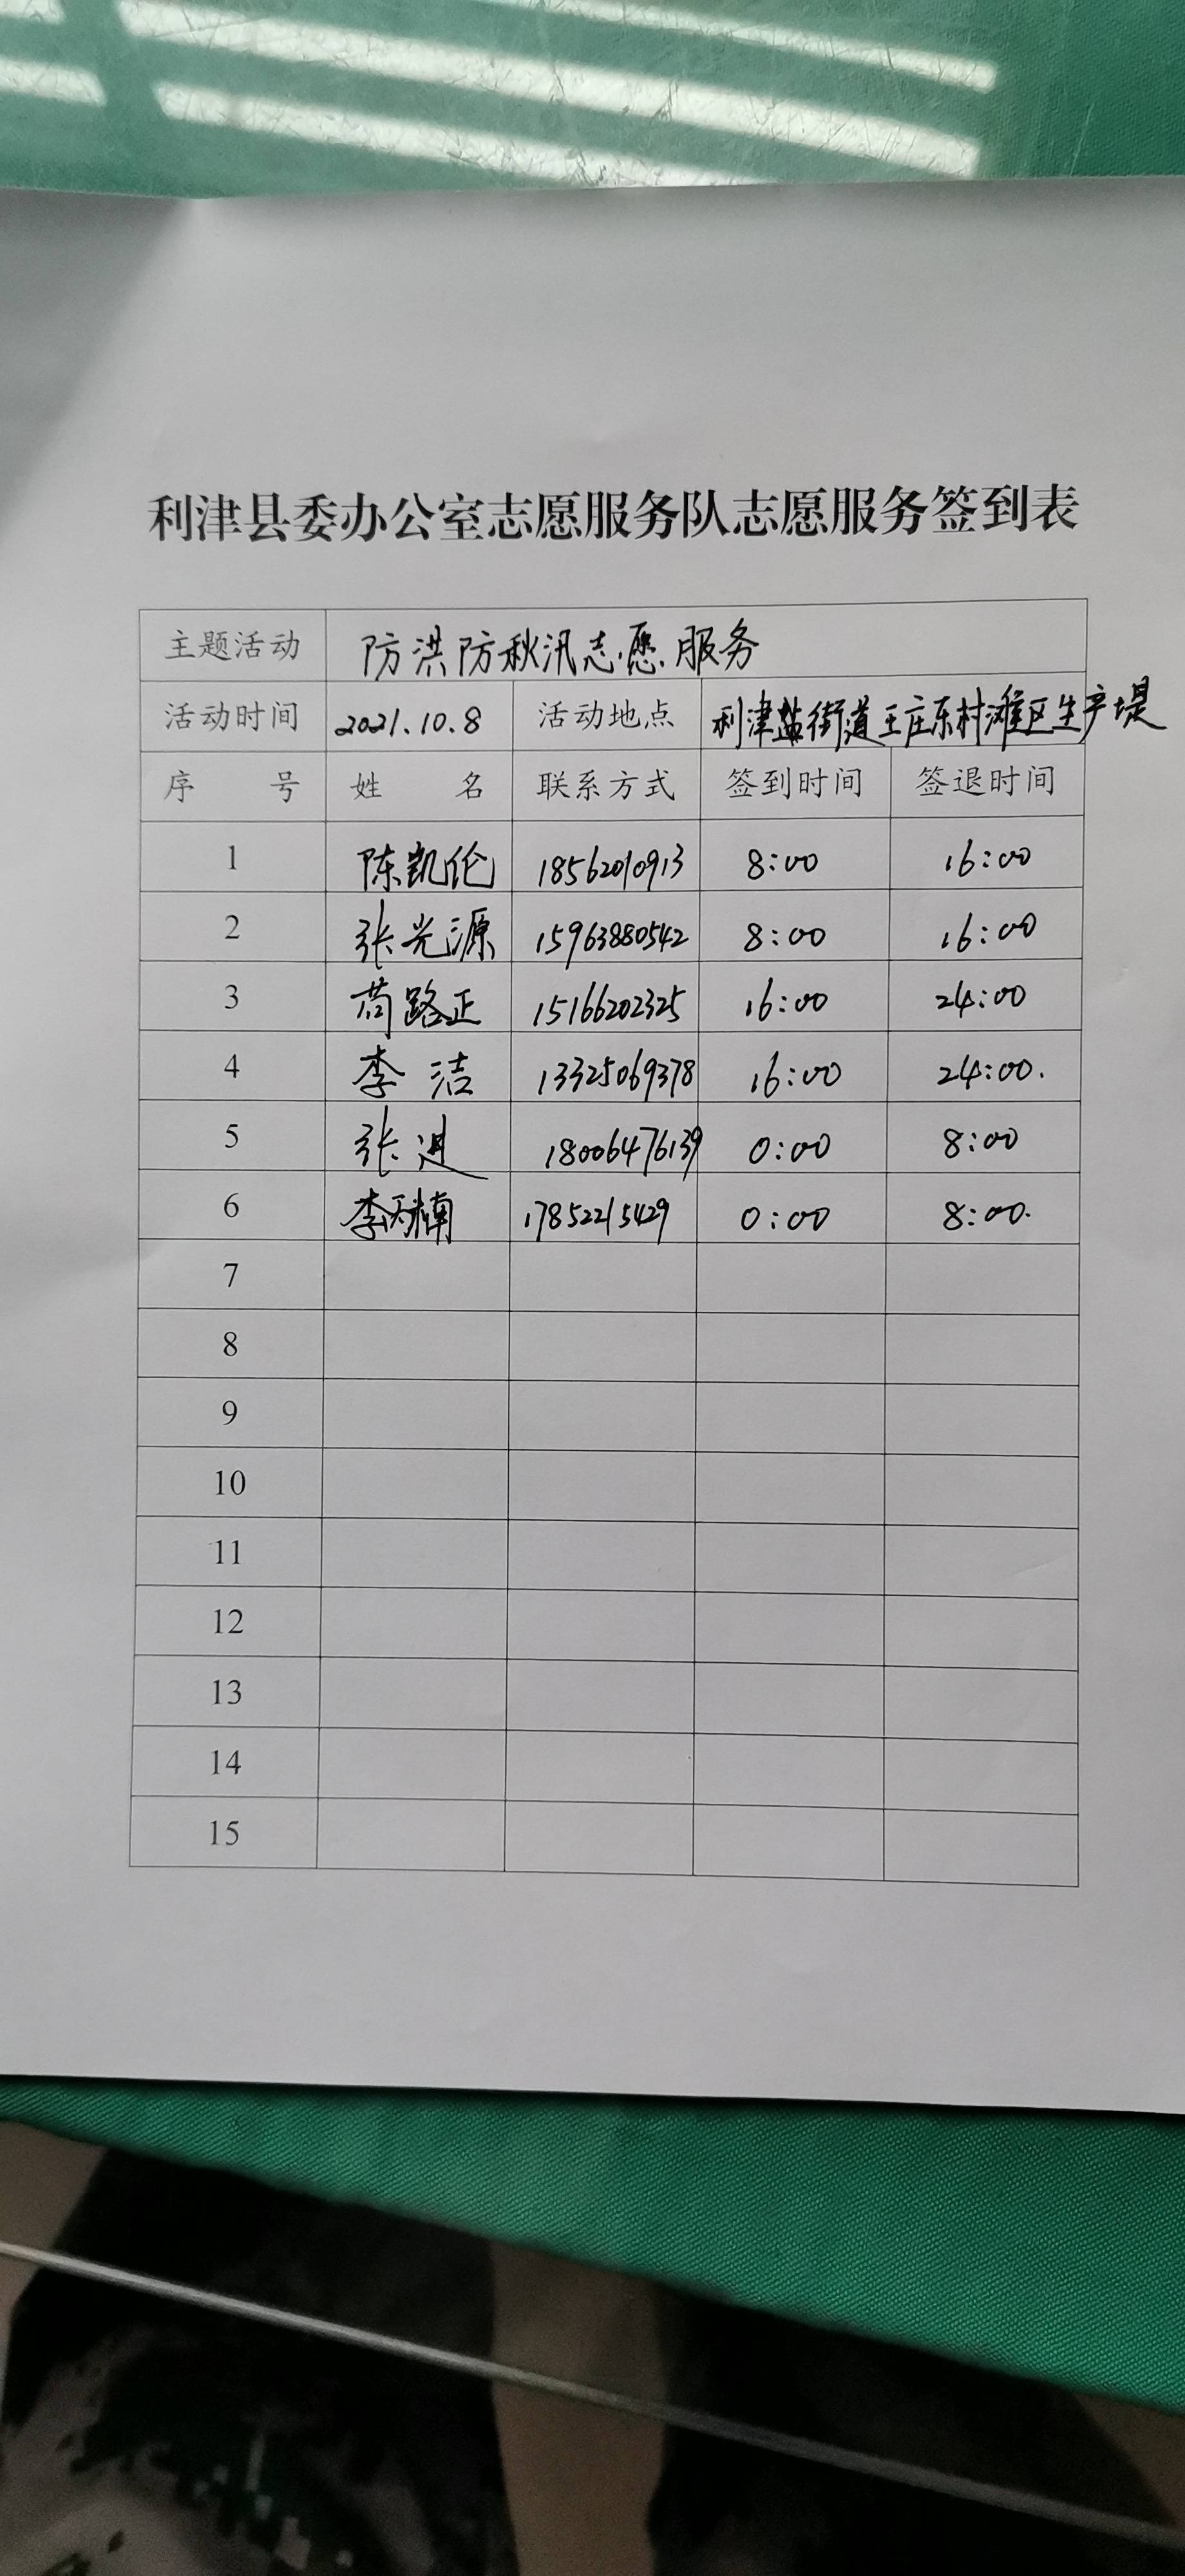 利津县委办公室志愿服务队志愿服务签到表
主题活动 防洪防秋汛志愿服务
活动时间 2021.10.8 活动地点 利津街道王庄东村滩区生产堤
序号 姓名 联系方式 签到时间 签退时间
1 陈凯伦 18562010913 8:00 16:00
2 张光源 15963880542 8:00 16:00
3 苟路正 15166202325 16:00 24:00
4 李洁 13325069378 16:00 24:00.
5 张进 18006476139 0:00 8:00
6 李楠 17852215429 0:00 8:00.
7
8
9
10
11
12
13
14
15